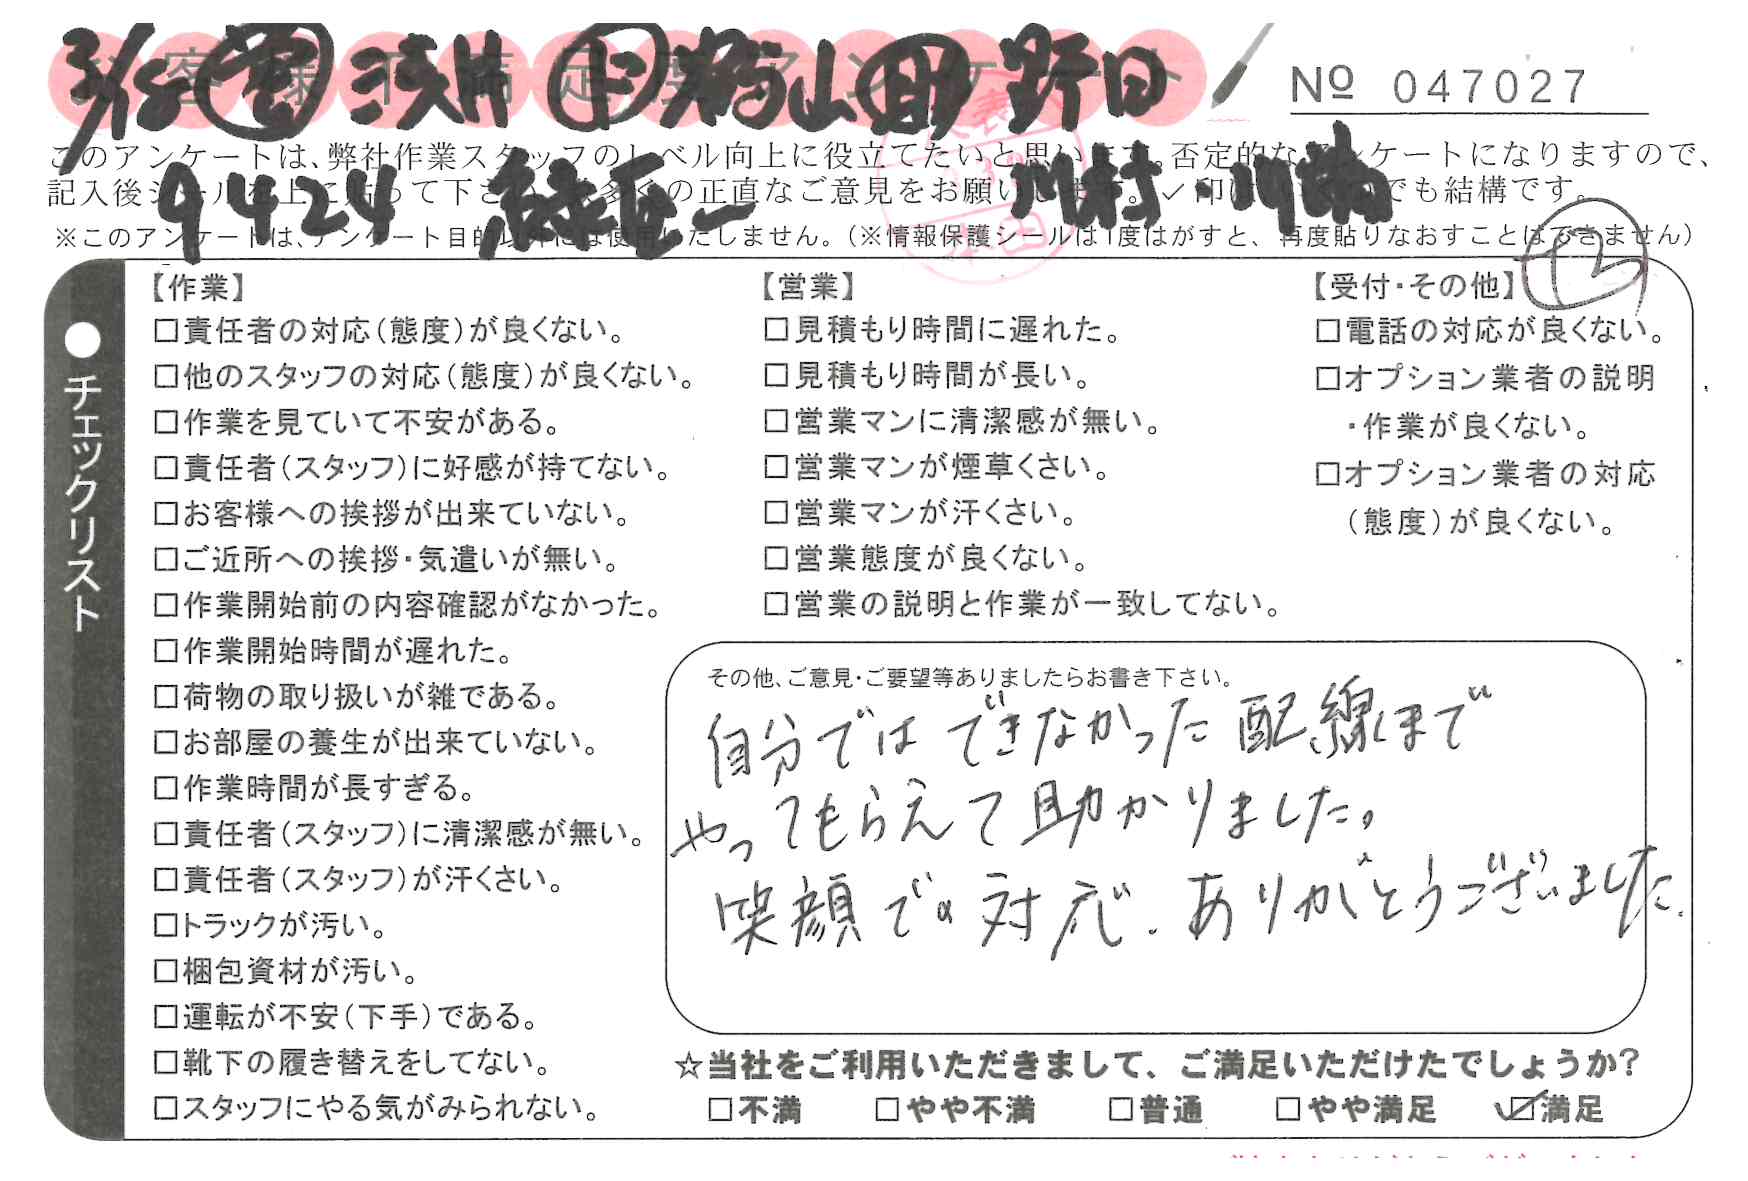 お客様不満足度アンケート
3/18 営 浅井 下 粉山 助 野田
No 047027
このアンケートは、弊社作業スタッフのレベル向上に役立てたいと思います。否定的なアンケートになりますので、
記入後シールを上に貼って下さい。数多くの正直なご意見をお願いします。✓印はいくつでも結構です。
9424 川村
※このアンケートは、アンケート目的以外には使用いたしません。(※情報保護シールは1度はがすと、再度貼りなおすことはできません)
●チェックリスト
【作業】
□責任者の対応(態度)が良くない。
□他のスタッフの対応(態度)が良くない。
□作業を見ていて不安がある。
□責任者(スタッフ)に好感が持てない。
□お客様への挨拶が出来ていない。
□ご近所への挨拶・気遣いが無い。
□作業開始前の内容確認がなかった。
□作業開始時間が遅れた。
□荷物の取り扱いが雑である。
□お部屋の養生が出来ていない。
□作業時間が長すぎる。
□責任者(スタッフ)に清潔感が無い。
□責任者(スタッフ)が汗くさい。
□トラックが汚い。
□梱包資材が汚い。
□運転が不安(下手)である。
□靴下の履き替えをしてない。
□スタッフにやる気がみられない。
【営業】
□見積もり時間に遅れた。
□見積もり時間が長い。
□営業マンに清潔感が無い。
□営業マンが煙草くさい。
□営業マンが汗くさい。
□営業態度が良くない。
□営業の説明と作業が一致してない。
【受付・その他】
□電話の対応が良くない。
□オプション業者の説明
・作業が良くない。
□オプション業者の対応
(態度)が良くない。
その他、ご意見・ご要望等ありましたらお書き下さい。
自分ではできなかった配線まで
やってもらえて助かりました。
笑顔での対応、ありがとうございました。
☆当社をご利用いただきまして、ご満足いただけたでしょうか?
□不満 □やや不満 □普通 □やや満足 ☑満足